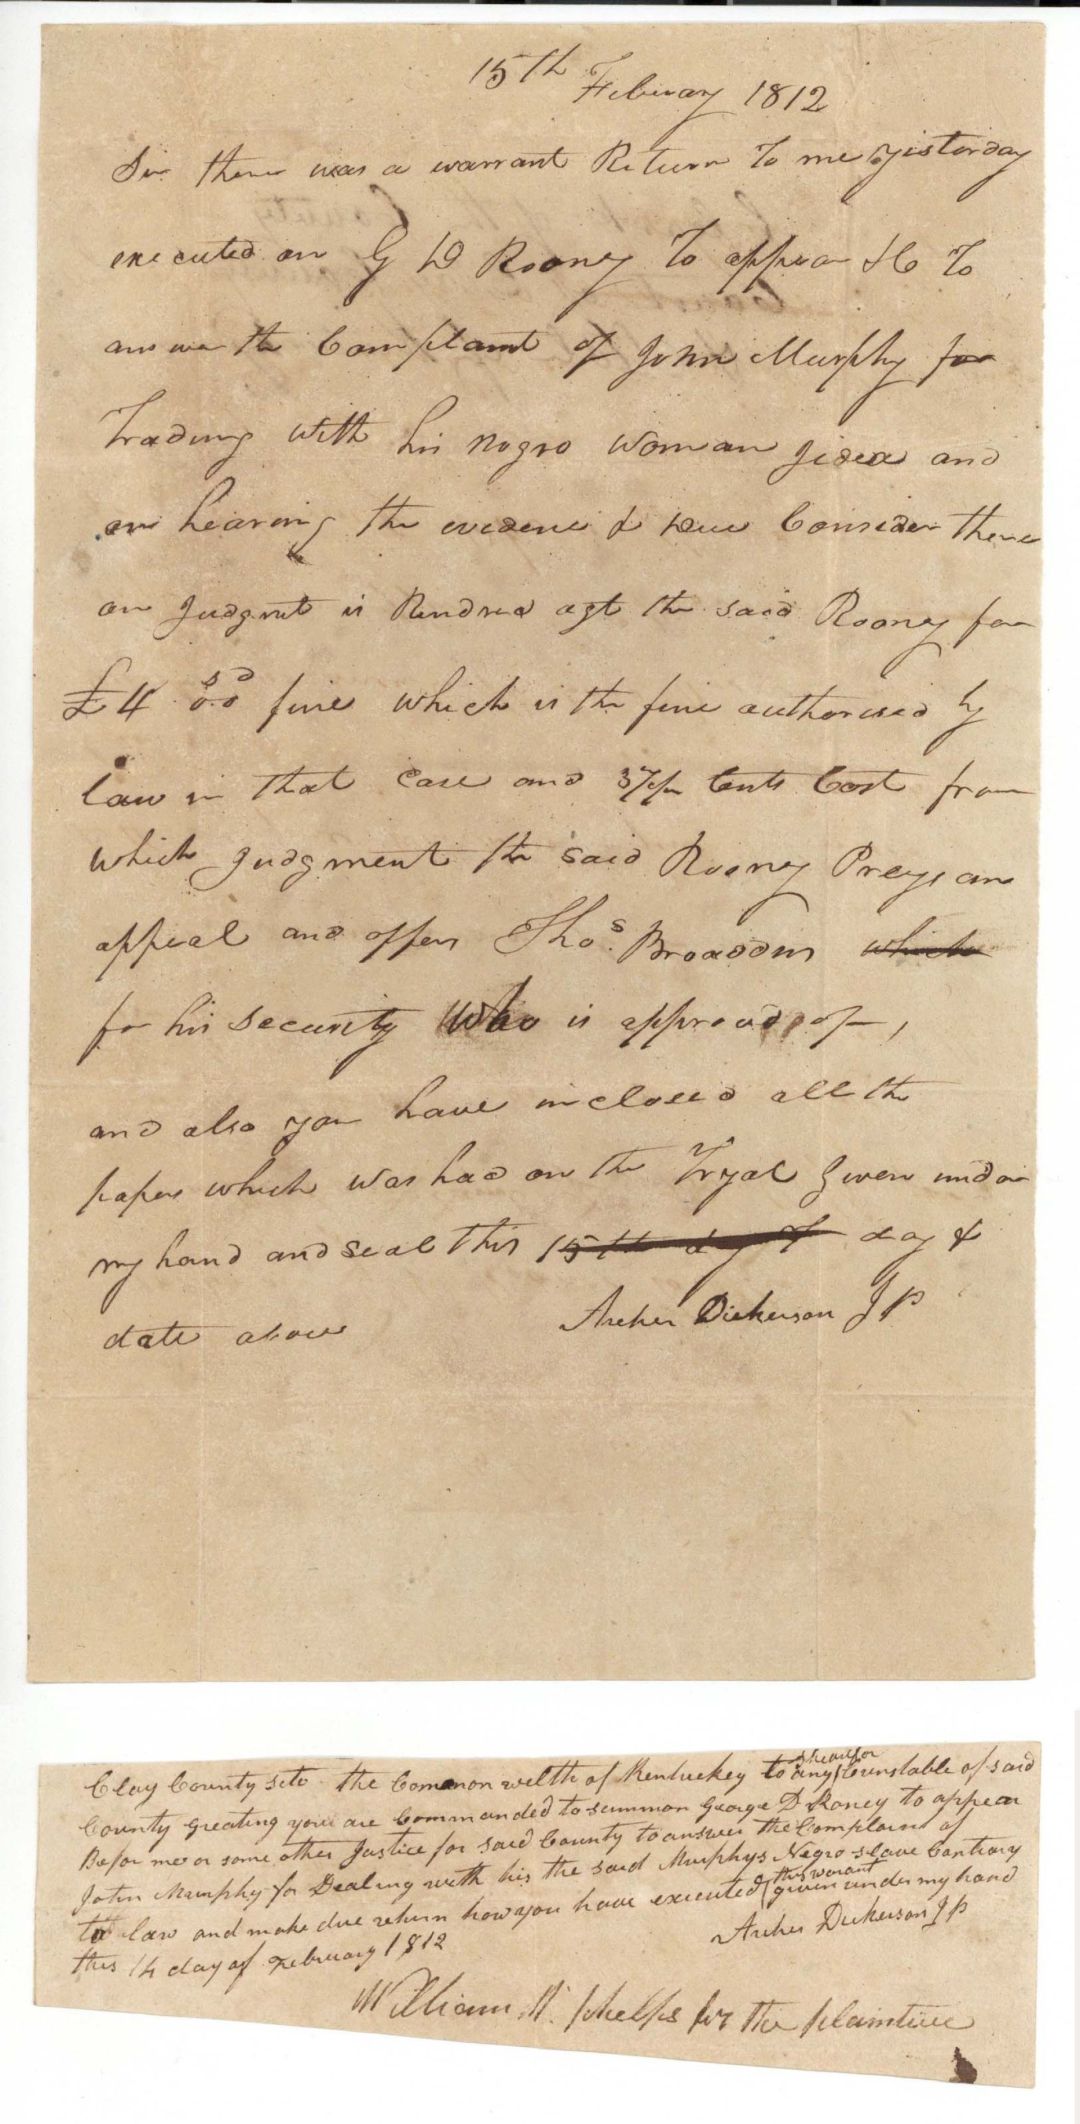 15th
Febuary 1812
Sir there was a warrant Return To me yisterday
executed on G D Rooney To appear &C To
answer the Complaint of John Murphy for
Trading with his negro woman and
on hearing the evidence & Due Consider there
on Judgmt is Rendred agt the said Rooney for
£4 s0.d0 fine which is the fine authorised by
law in that Case and Cents Cost from
which Judgment the said Rooney Preys an
appeal and offers Thos. Broaddus which
for his security who is approved of,
and also you have inclosed all the
papers which was had on the Tryal Given under
my hand and seal this 15th day of day &
date above Archer Dickerson J P
Clay County Sct the Common welth of Kentuckey to any Counstable of said
County greating you are Commanded to summon George D Roney to appear
Before me or some other Justice for said County to answer the Complaint of
John Murphy for Dealing with his the said Murphys Negro slave Contrary
to law and make due return how you have executed this warant given under my hand
this 14 day of February 1812 Archer Dickerson J P
William phelps for the plaintiee